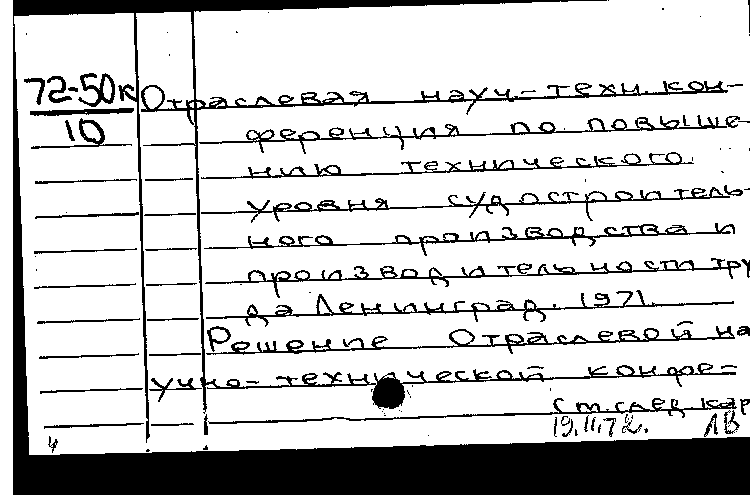 72-50к Отраслевая науч.-техн. кон-
10 ференция по повыше-
нию технического
уровня судостроитель-
ного производства и
производительности тру
да Ленинград. 1971.
Решение Отраслевой на
учно-технической конфе=
см. след. кар
19.II.72. ЛВ
4